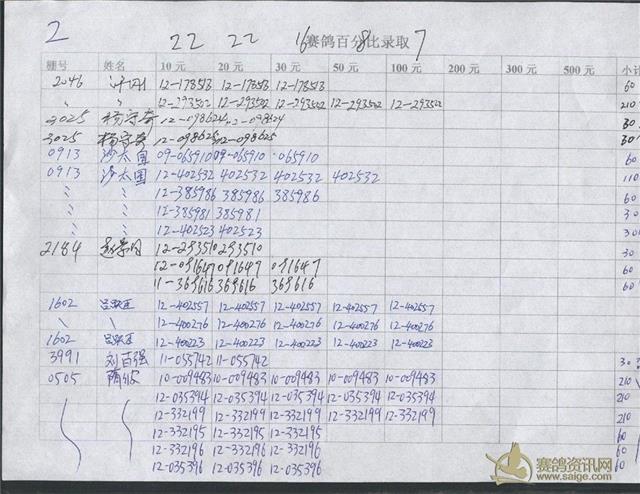 2
22 22 16 赛鸽百分比录取 8 7
棚号 姓名 10元 20元 30元 50元 100元 200元 300元 500元 小计
2046 12-178513 12-178513 12-178513 60
〃 〃 12-293502 12-293502 12-293502 12-293502 12-293502 210
3025 杨守奇 12-098624 12-098624 30
3025 杨守奇 12-098625 12-098625 30
0913 沙太国 09-065910 09-065910 065910 60
0913 沙太国 12-402532 402532 402532 402532 110
〃 〃 12-385986 385986 385986 60
〃 〃 12-385981 385981 30
〃 〃 12-402523 402523 30
2184 12-293510 293510
12-091647 091647 091647 60
11-368616 368616 368616 60
1602 12-402557 12-402557 12-402557 12-402557 12-402557
\ \ 12-400276 12-400276 12-400276 12-400276 12-400276
1602 12-400223 12-400223 12-400223 12-400223 12-400223
3991 刘百强 11-055742 11-055742 30
0505 10-009483 10-009483 10-009483 10-009483 10-009483 210
12-035394 12-035394 12-035394 12-035394 12-035394 210
12-332199 12-332199 12-332199 12-332199 12-332199 210
12-332195 12-332195 12-332195 60
12-332196 12-332196 12-332196 60
12-035396 12-035396 12-035396 60
赛鸽资讯网
www.saige.com